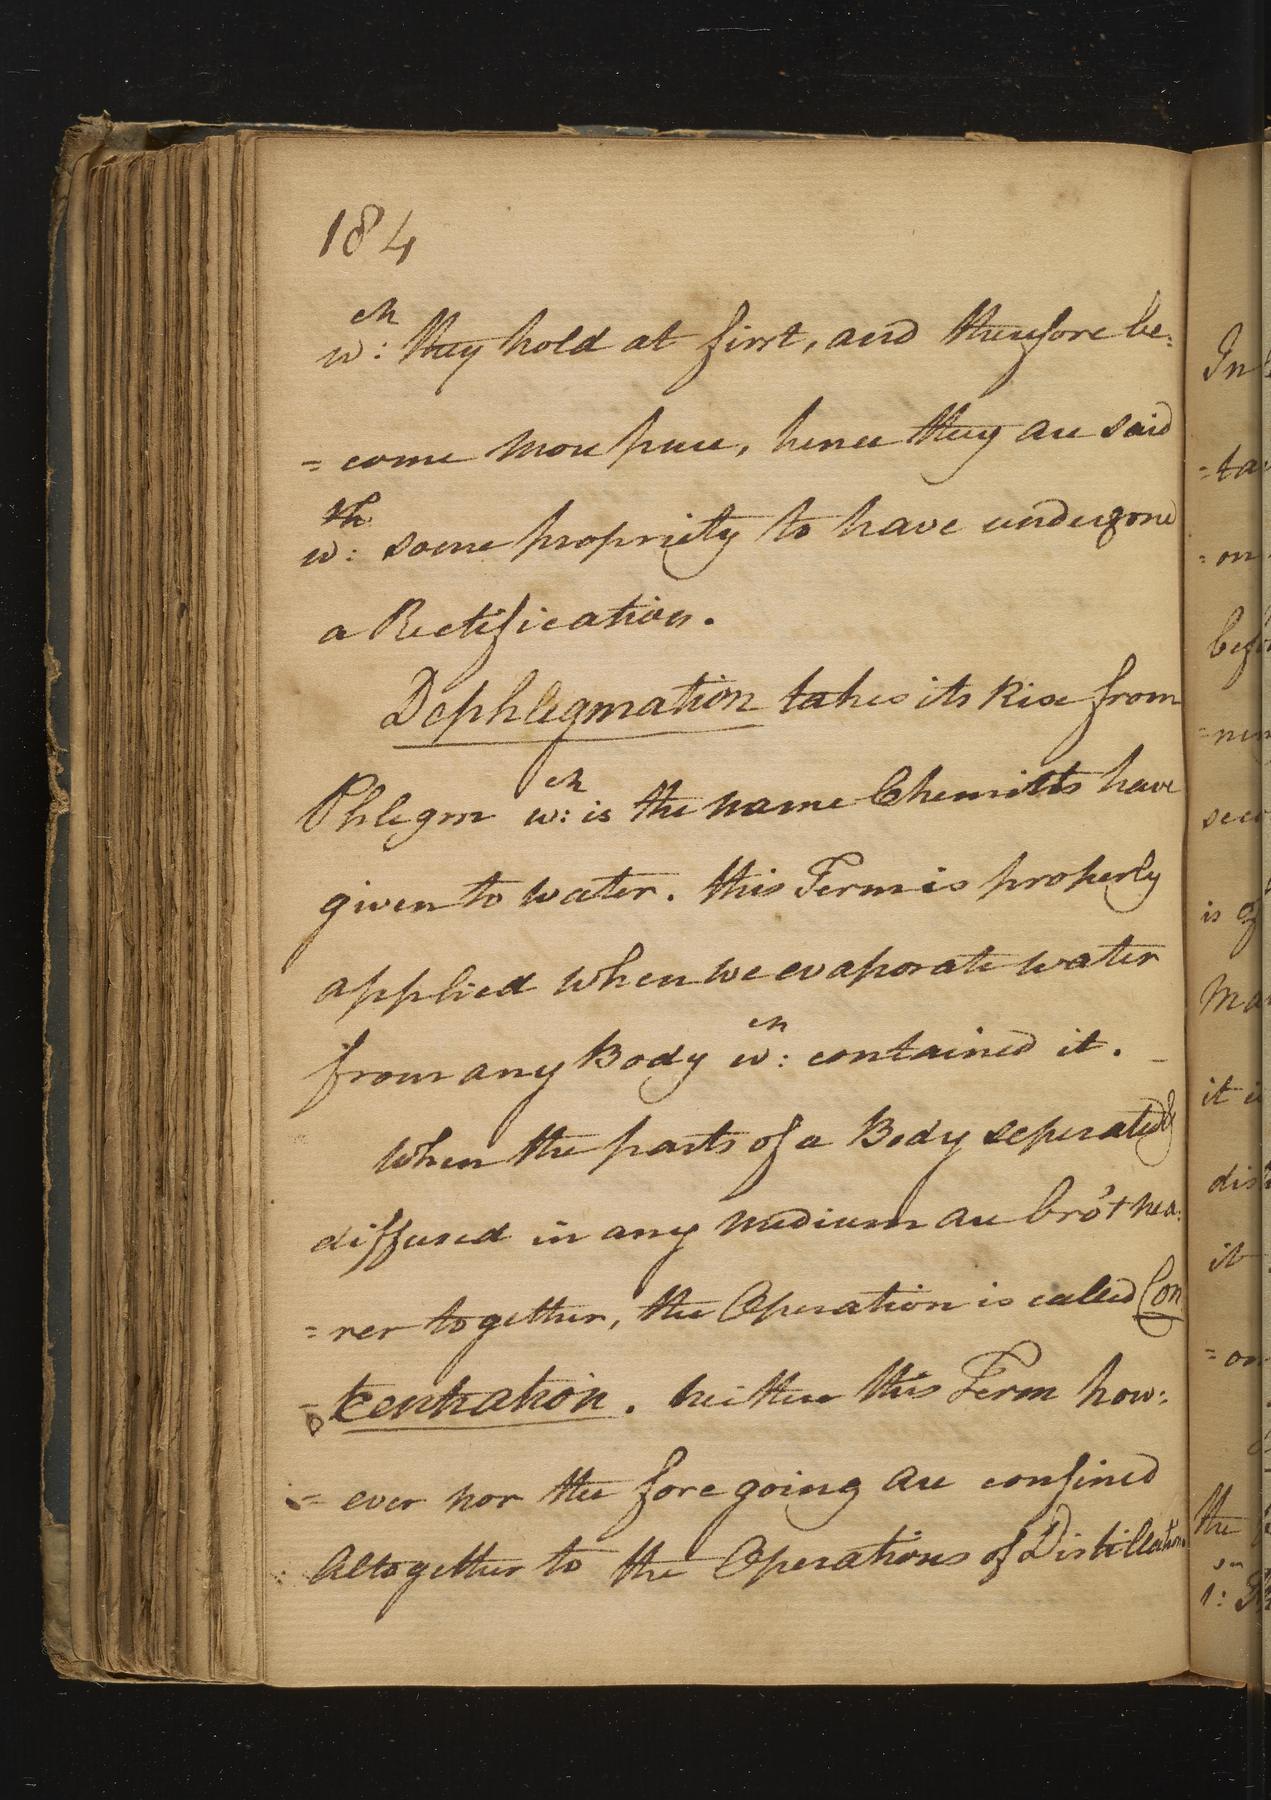 184
w:ch they hold at first, and therefore be:
= come more pure, hence they are said
w:th some propriety to have undergone
a Rectification.
Dephlegmation takes its Rise from
Phlegm w:ch is the name Chemists have
given to water. this Term is properly
applied when we evaporate water
from any Body w:ch contained it. _
When the parts of a Body seperated &
diffused in any medium are bro't nea:
= rer together, the Operation is called Con
= centration. neither this Term how:
= ever nor the foregoing are confined
Altogether to the Operations of Distillation